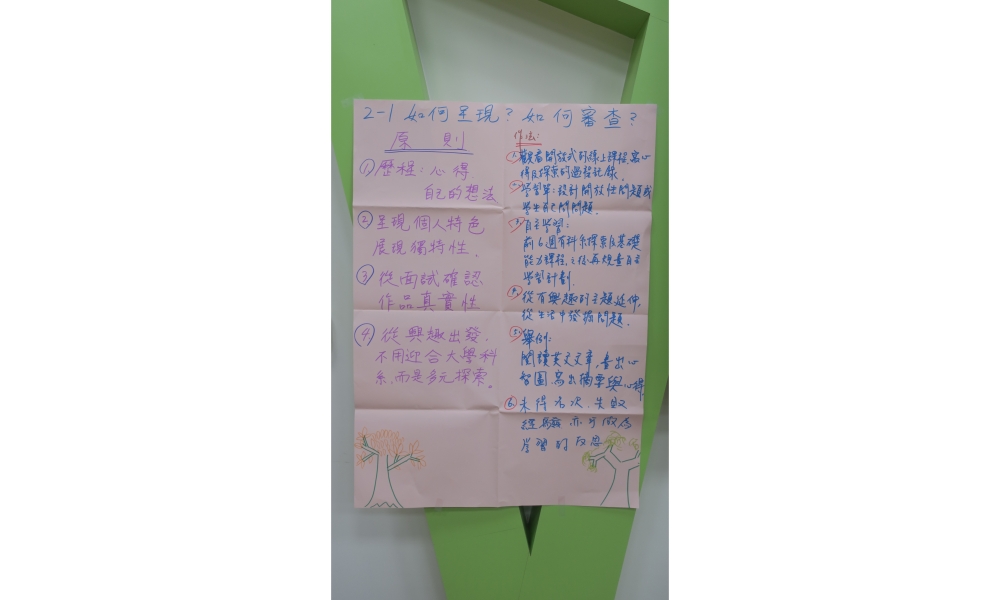 2-1 如何呈現？如何審查？
原則
① 歷程：心得
自己的想法
② 呈現個人特色
展現獨特性．
③ 從面試確認
作品真實性
④ 從興趣出發．
不用迎合大學科
系，而是多元探索。
作法：
① 觀看開放式的線上課程寫心
得及探索的過程記錄．
② 學習單：設計開放性問題或
學生自己問問題．
③ 自主學習：
前6週有科系探索及基礎
能力課程，之後再規畫自主
學習計劃．
④ 從有興趣的主題延伸，
從生活中發掘問題．
⑤ 舉例：
閱讀英文文章，畫出心
智圖，寫出摘要與心得
⑥ 未得名次、失敗
經驗亦可做為
學習的反思